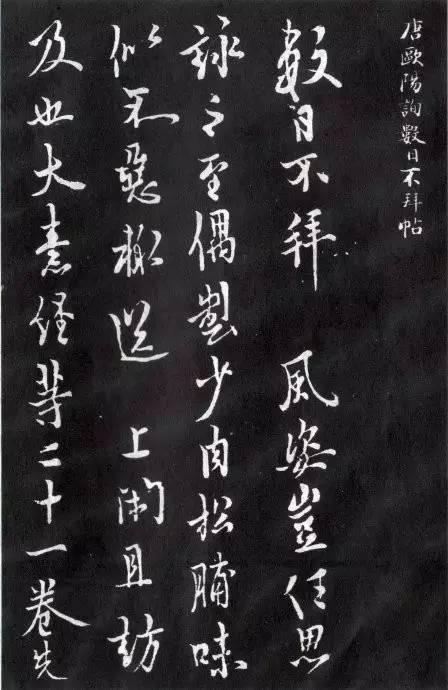 唐歐陽詢數日不拜帖
數日不拜 風姿豈任思
詠之至偶製少肉松脯味
似不惡送 上閑且訪
及也大素経等二十一卷先